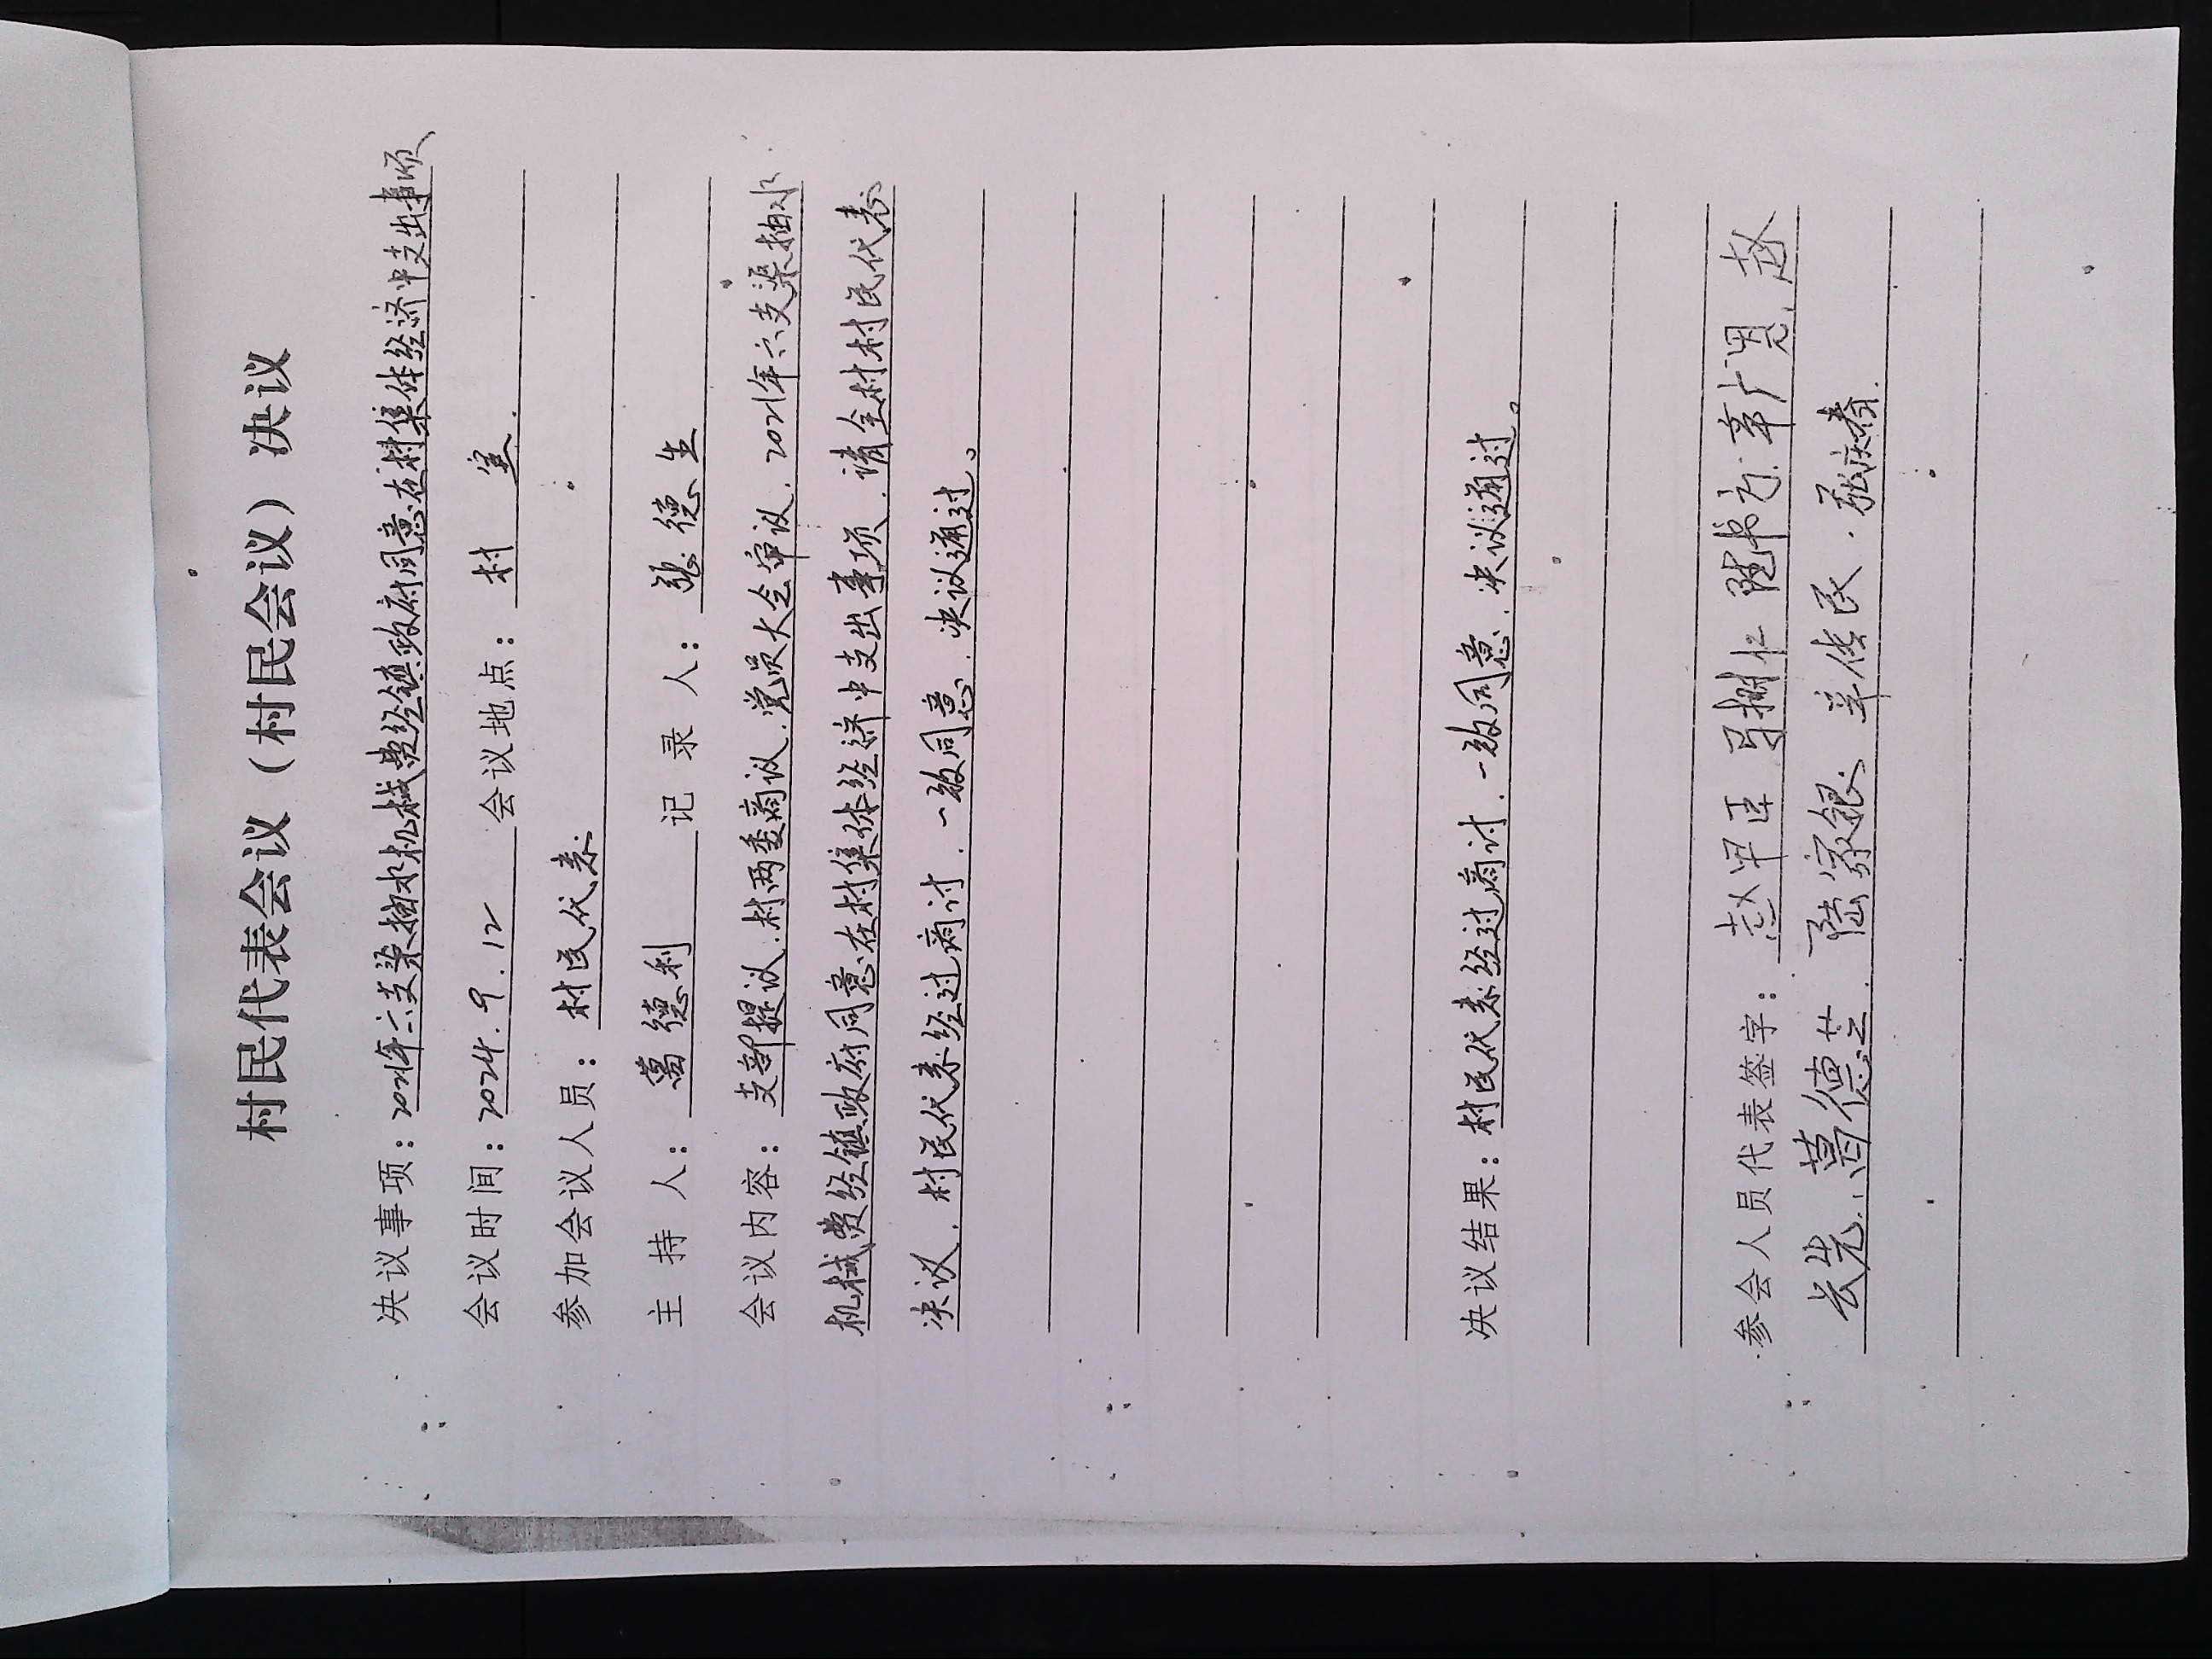 村民代表会议（村民会议）决议
决议事项：2021年六支渠抽水机械费经镇政府同意在村集体经济中支出事项
会议时间：2024.9.12 会议地点：村室
参加会议人员：村民代表
主持人：葛德利 记录人：张德生
会议内容：支部提议.村两委商议.党员大会审议.2021年六支渠抽水
机械费经镇政府同意在村集体经济中支出事项.请全村村民代表
决议.村民代表经过商讨.一致同意.决议通过。
决议结果：村民代表经过商讨.一致同意.决议通过。
参会人员代表签字：
长先.葛德芝.陆家银.辛传民.